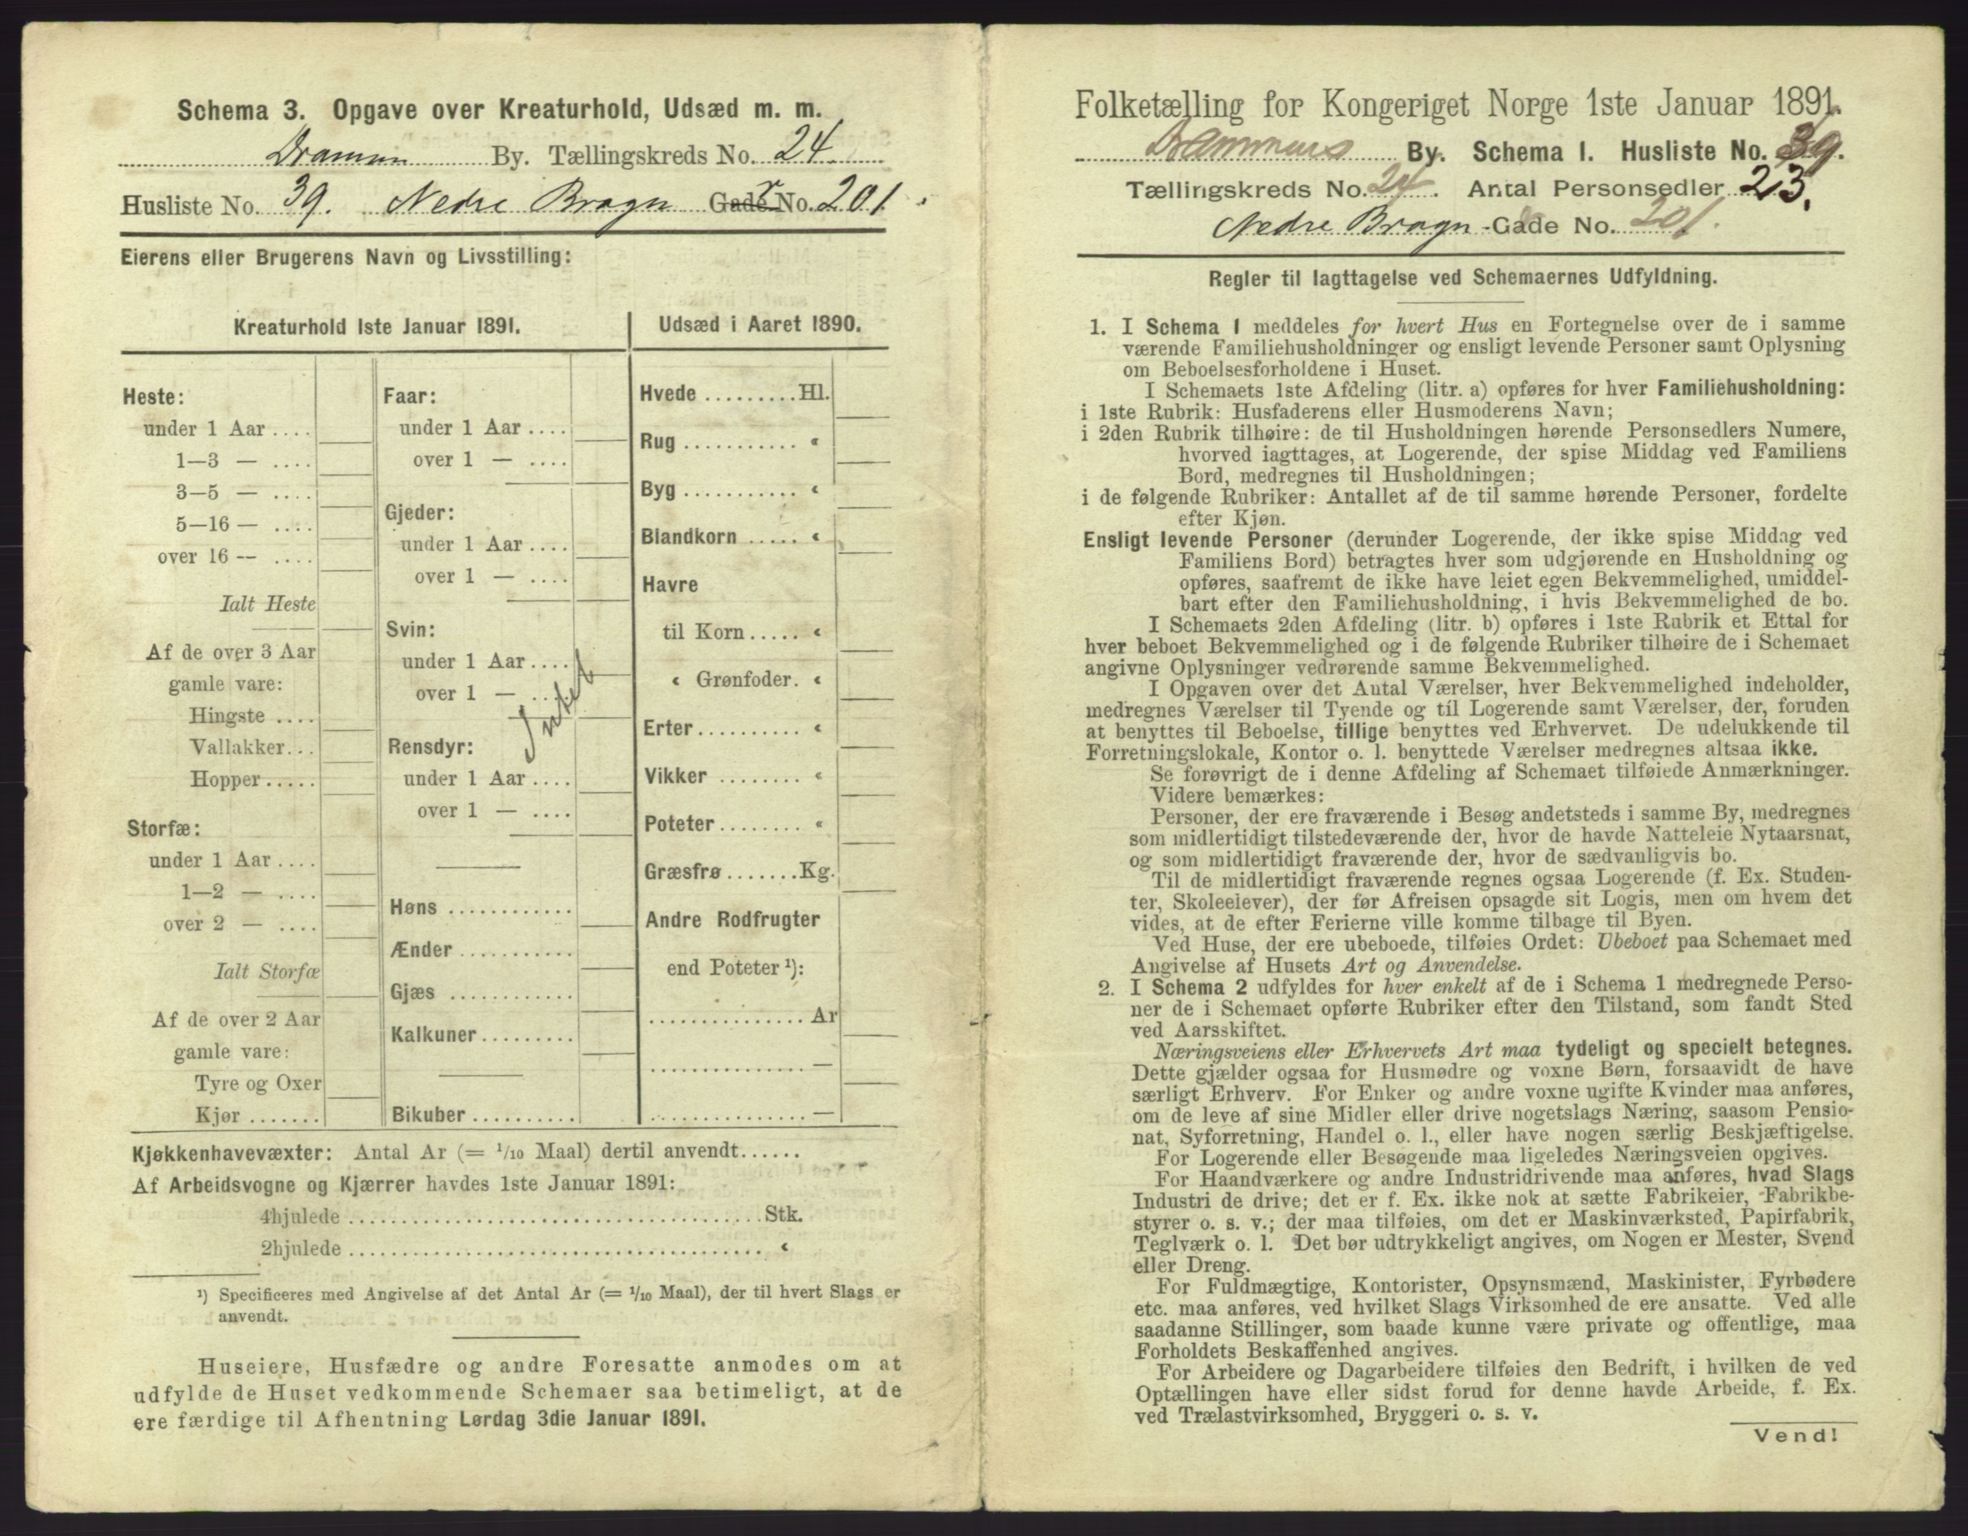 Schema 3. Opgave over Kreaturhold, Udsæd m. m.
Dramen By. Tællingskreds No. 24
Husliste No. 39. Nedre Bragn Gade No. 201.
Eierens eller Brugerens Navn og Livsstilling:
Kreaturhold 1ste Januar 1891.
Heste:
under 1 Aar ....
1—3 — ....
3—5 — ....
5—16 — ....
over 16 — ....
Ialt Heste
Af de over 3 Aar
gamle vare:
Hingste ....
Vallakker...
Hopper.....
Storfæ:
under 1 Aar ....
1—2 — ....
over 2 — ....
Ialt Storfæ
Af de over 2 Aar
gamle vare:
Tyre og Oxer
Kjør .......
Faar:
under 1 Aar ....
over 1 — ....
Gjeder:
under 1 Aar ....
over 1 — ....
Svin:
under 1 Aar ....
over 1 — ....
Intet
Rensdyr:
under 1 Aar ....
over 1 — ....
Høns ............
Ænder ...........
Gjæs ............
Kalkuner.........
Bikuber ..........
Udsæd i Aaret 1890.
Hvede .........Hl.
Rug ........... «
Byg ........... «
Blandkorn ..... «
Havre
til Korn..... «
« Grønfoder. «
Erter .......... «
Vikker ........ «
Poteter........ «
Græsfrø.......Kg.
Andre Rodfrugter
end Poteter ¹):
............... Ar
............... —
............... —
Kjøkkenhavevæxter: Antal Ar (= 1/10 Maal) dertil anvendt......
Af Arbeidsvogne og Kjærrer havdes 1ste Januar 1891:
4hjulede ......................................Stk.
2hjulede ...................................... «
¹) Specificeres med Angivelse af det Antal Ar (= 1/10 Maal), der til hvert Slags er
anvendt.
Huseiere, Husfædre og andre Foresatte anmodes om at
udfylde de Huset vedkommende Schemaer saa betimeligt, at de
ere færdige til Afhentning Lørdag 3die Januar 1891.
Folketælling for Kongeriget Norge 1ste Januar 1891.
Drammens By. Schema 1. Husliste No. 39.
Tællingskreds No. 24. Antal Personsedler 23.
Nedre Bragn-Gade No. 201.
Regler til Iagttagelse ved Schemaernes Udfyldning.
1. I Schema 1 meddeles for hvert Hus en Fortegnelse over de i samme
værende Familiehusholdninger og ensligt levende Personer samt Oplysning
om Beboelsesforholdene i Huset.
I Schemaets 1ste Afdeling (litr. a) opføres for hver Familiehusholdning:
i 1ste Rubrik: Husfaderens eller Husmoderens Navn;
i 2den Rubrik tilhøire: de til Husholdningen hørende Personsedlers Numere,
hvorved iagttages, at Logerende, der spise Middag ved Familiens
Bord, medregnes til Husholdningen;
i de følgende Rubriker: Antallet af de til samme hørende Personer, fordelte
efter Kjøn.
Ensligt levende Personer (derunder Logerende, der ikke spise Middag ved
Familiens Bord) betragtes hver som udgjørende en Husholdning og
opføres, saafremt de ikke have leiet egen Bekvemmelighed, umiddel-
bart efter den Familiehusholdning, i hvis Bekvemmelighed de bo.
I Schemaets 2den Afdeling (litr. b) opføres i 1ste Rubrik et Ettal for
hver beboet Bekvemmelighed og i de følgende Rubriker tilhøire de i Schemaet
angivne Oplysninger vedrørende samme Bekvemmelighed.
I Opgaven over det Antal Værelser, hver Bekvemmelighed indeholder,
medregnes Værelser til Tyende og til Logerende samt Værelser, der, foruden
at benyttes til Beboelse, tillige benyttes ved Erhvervet. De udelukkende til
Forretningslokale, Kontor o. l. benyttede Værelser medregnes altsaa ikke.
Se forøvrigt de i denne Afdeling af Schemaet tilføiede Anmærkninger.
Videre bemærkes:
Personer, der ere fraværende i Besøg andetsteds i samme By, medregnes
som midlertidigt tilstedeværende der, hvor de havde Natteleie Nytaarsnat,
og som midlertidigt fraværende der, hvor de sædvanligvis bo.
Til de midlertidigt fraværende regnes ogsaa Logerende (f. Ex. Studen-
ter, Skoleelever), der før Afreisen opsagde sit Logis, men om hvem det
vides, at de efter Ferierne ville komme tilbage til Byen.
Ved Huse, der ere ubeboede, tilføies Ordet: Ubeboet paa Schemaet med
Angivelse af Husets Art og Anvendelse.
2. I Schema 2 udfyldes for hver enkelt af de i Schema 1 medregnede Perso-
ner de i Schemaet opførte Rubriker efter den Tilstand, som fandt Sted
ved Aarsskiftet.
Næringsveiens eller Erhvervets Art maa tydeligt og specielt betegnes.
Dette gjælder ogsaa for Husmødre og voxne Børn, forsaavidt de have
særligt Erhverv. For Enker og andre voxne ugifte Kvinder maa anføres,
om de leve af sine Midler eller drive nogetslags Næring, saasom Pensio-
nat, Syforretning, Handel o. l., eller have nogen særlig Beskjæftigelse.
For Logerende eller Besøgende maa ligeledes Næringsveien opgives.
For Haandværkere og andre Industridrivende maa anføres, hvad Slags
Industri de drive; det er f. Ex. ikke nok at sætte Fabrikeier, Fabrikbe-
styrer o. s. v.; der maa tilføies, om det er Maskinværksted, Papirfabrik,
Teglværk o. l. Det bør udtrykkeligt angives, om Nogen er Mester, Svend
eller Dreng.
For Fuldmægtige, Kontorister, Opsynsmænd, Maskinister, Fyrbødere
etc. maa anføres, ved hvilket Slags Virksomhed de ere ansatte. Ved alle
saadanne Stillinger, som baade kunne være private og offentlige, maa
Forholdets Beskaffenhed angives.
For Arbeidere og Dagarbeidere tilføies den Bedrift, i hvilken de ved
Optællingen have eller sidst forud for denne havde Arbeide, f. Ex.
ved Trælastvirksomhed, Bryggeri o. s. v.
Vend!